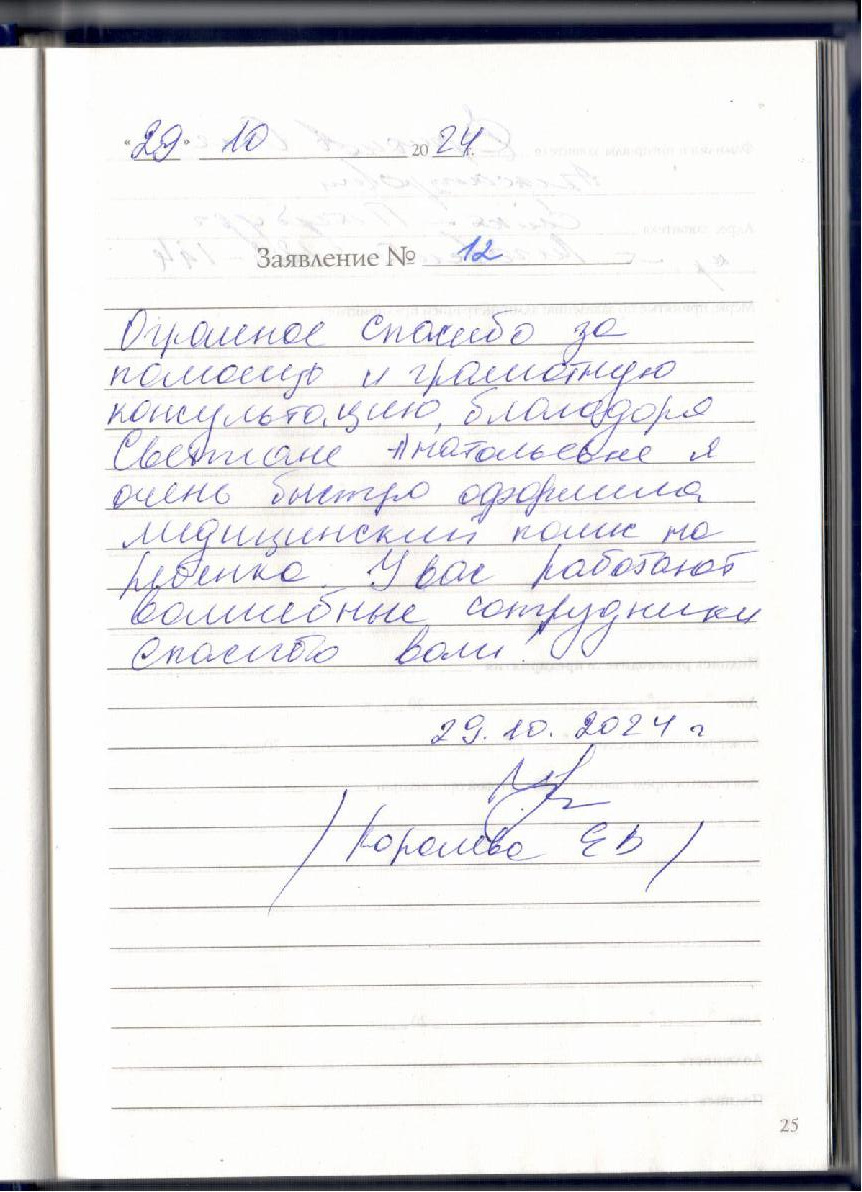 "29" 10 2024 г.
Заявление № 12
Огромное спасибо за
помощь и грамотную
консультацию, благодаря
Светлане Анатольевне я
очень быстро оформила
медицинский полис на
ребенка. У вас работают
волшебные сотрудники
Спасибо вам!
29.10.2024 г
/ Королева ЕВ /
25